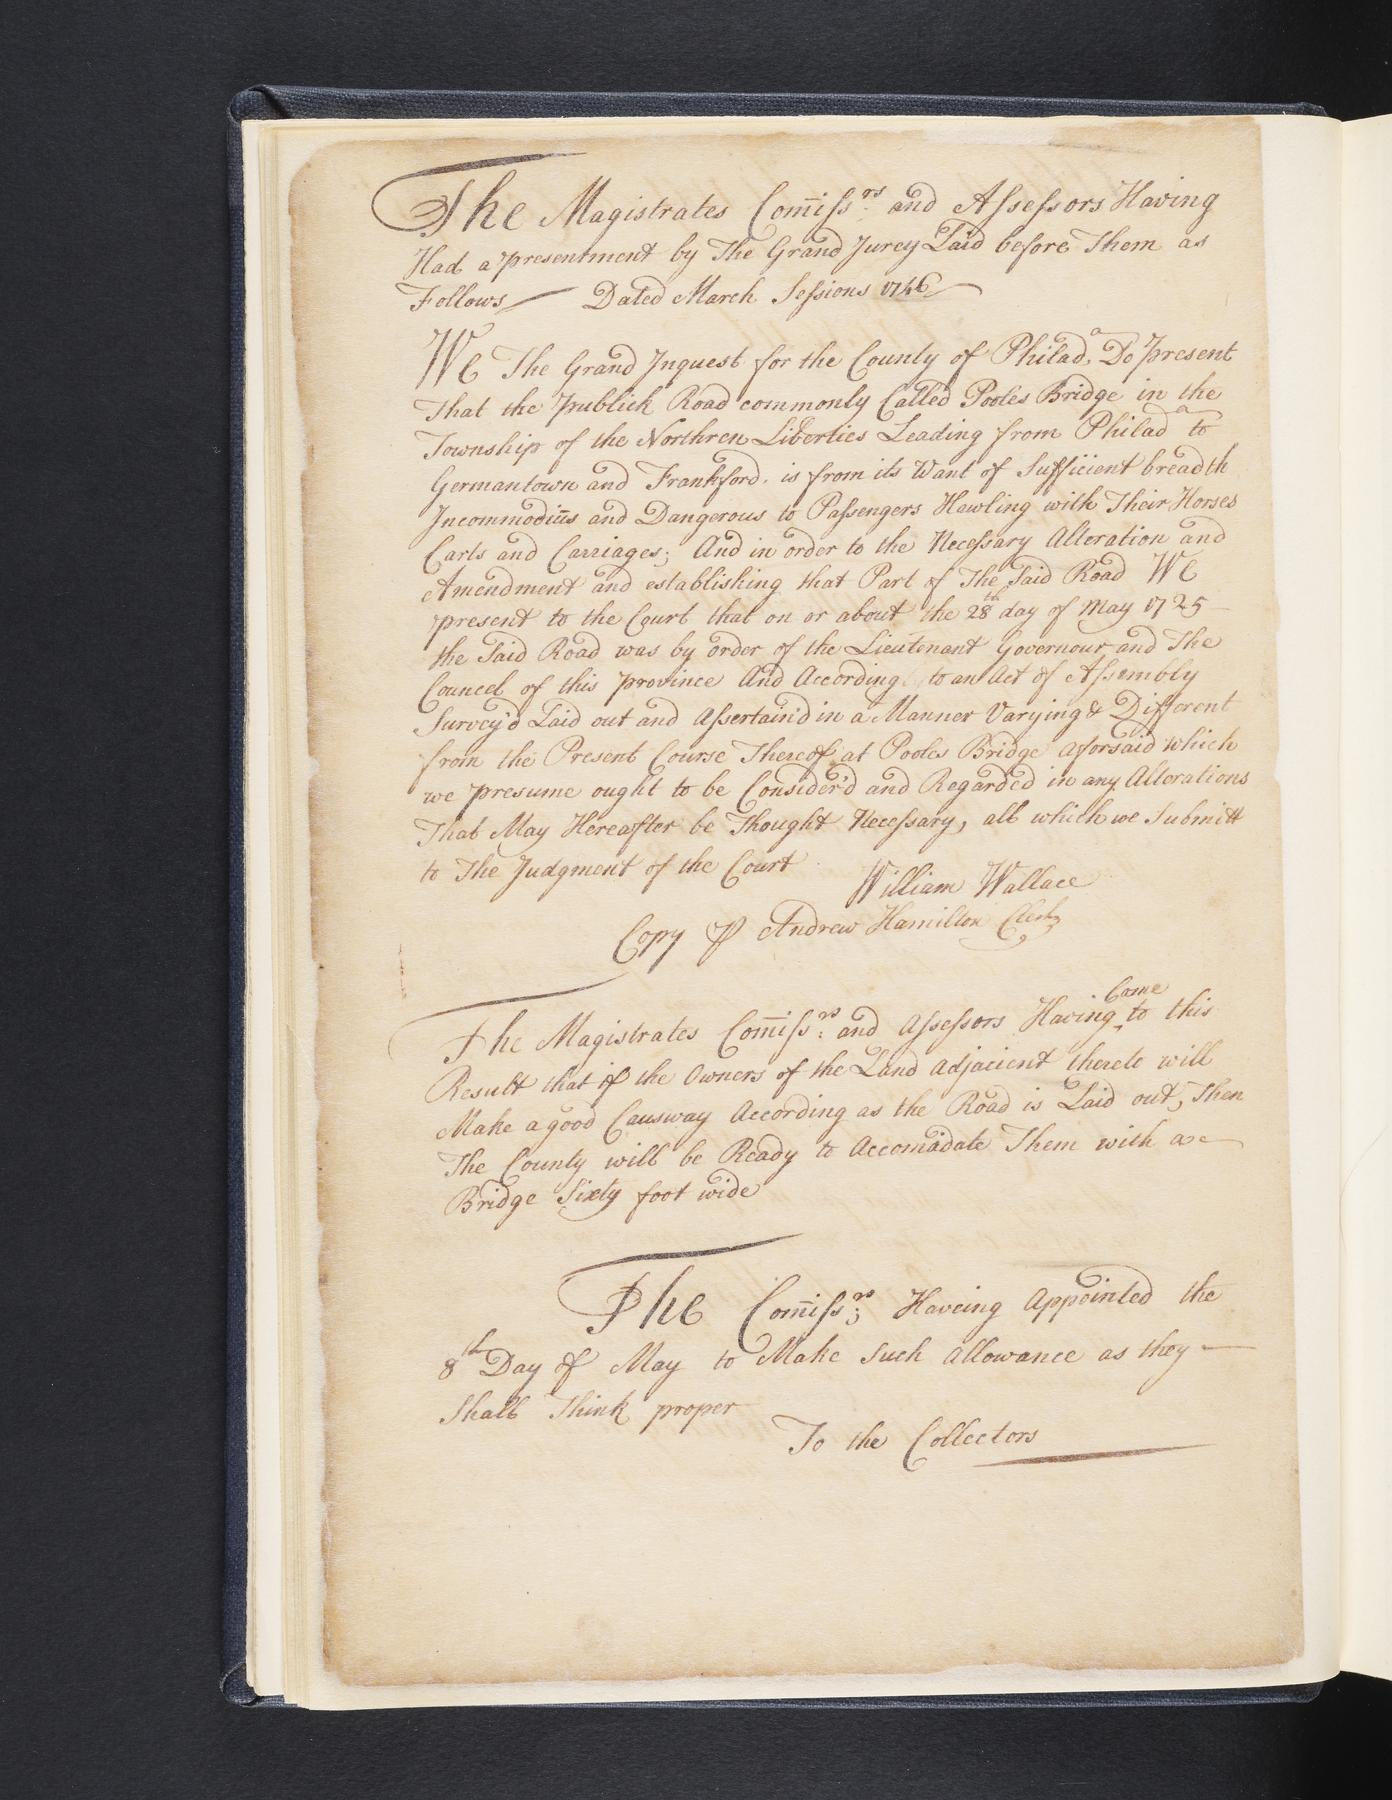 The Magistrates Com̄iſsrs: and Aſseſsors Having
Had a presentment by The Grand Jurey Laid before Them as
Follows — Dated March Seſsions 1746
We The Grand Inquest for the County of Philada. Do present
That the publick Road commonly Called Pooles Bridge in the
Township of the Northren Liberties Leading from Philada to
Germantown and Frankford. is from its Want of Sufficient breadth
Incommodius and Dangerous to Paſsengers Hawling with Their Horses
Carts and Carriages; And in order to the Neceſsary Alteration and
Amendment and establishing that Part of The Said Road We
present to the Court that on or about the 28th day of May 1725
the Said Road was by order of the Lieutenant Governour and The
Councel of this province And According to an Act of Aſsembly
Survey'd Laid out and Aſsertain'd in a Manner Varying & Different
from the Present Course Thereof at Pooles Bridge aforsaid which
we presume ought to be Consider'd and Regarded in any Alterations
That May Hereafter be Thought Neceſsary, all which we Submitt
to The Judgment of the Court
William Wallace
Copy ⅌ Andrew Hamilton Clerk
The Magistrates Com̄iſsrs: and Aſseſsors Having Come to this
Result that if the Owners of the Land Adjacient thereto will
Make a good Causway According as the Road is Laid out, Then
The County will be Ready to Accomadate Them with a
Bridge Sixty foot wide
The Com̄iſsrs; Haveing Appointed the
8th Day of May to Make Such Allowance as they —
Shall Think proper
To the Collectors